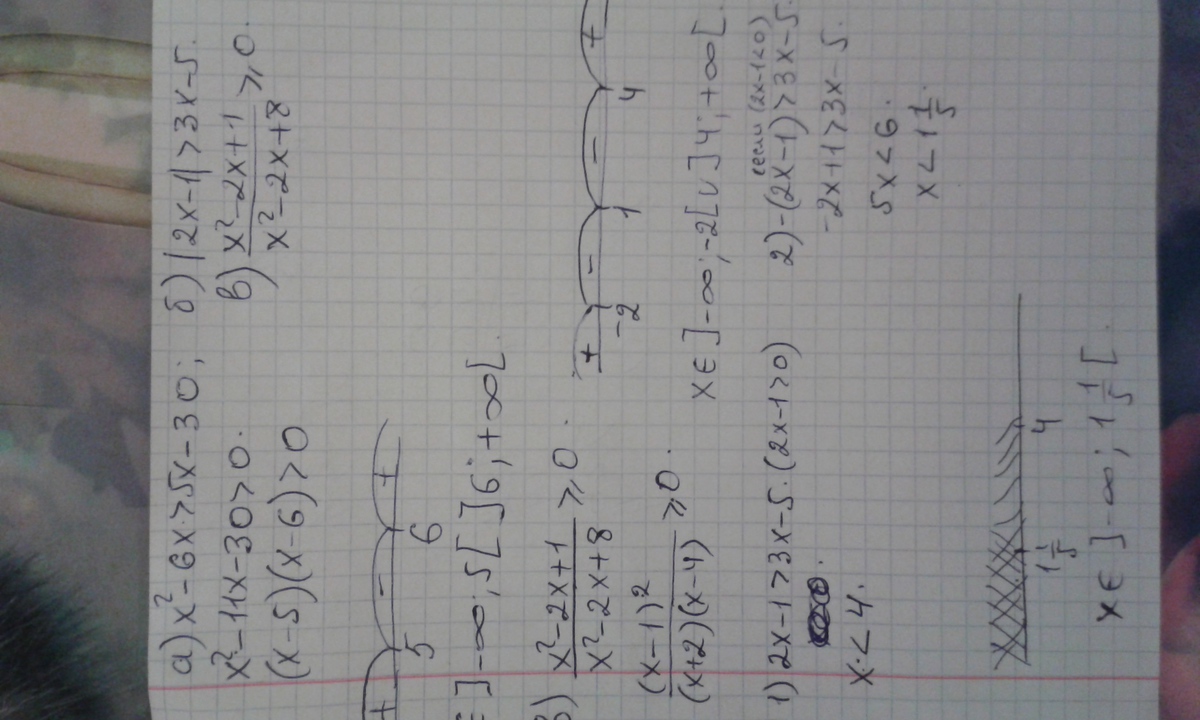 а) x²-6x>5x-30; б) |2x-1|>3x-5.
x²-11x-30>0. в) x²-2x+1/x²-2x+8 ≥0.
(x-5)(x-6)>0
+ - +
5 6
]-∞;5[ ]6;+∞[.
x²-2x+1/x²-2x+8 ≥0.
(x-1)²/(x+2)(x-4) ≥0.
+ - - +
-2 1 4
x∈]-∞;-2[∪]4;+∞[.
1) 2x-1>3x-5. (2x-1>0)
x<4.
2) -(2x-1)>3x-5. (если (2x-1<0)
-2x+1>3x-5.
5x<6.
x<1 1/5.
1 1/5 4
x∈]-∞; 1 1/5[.